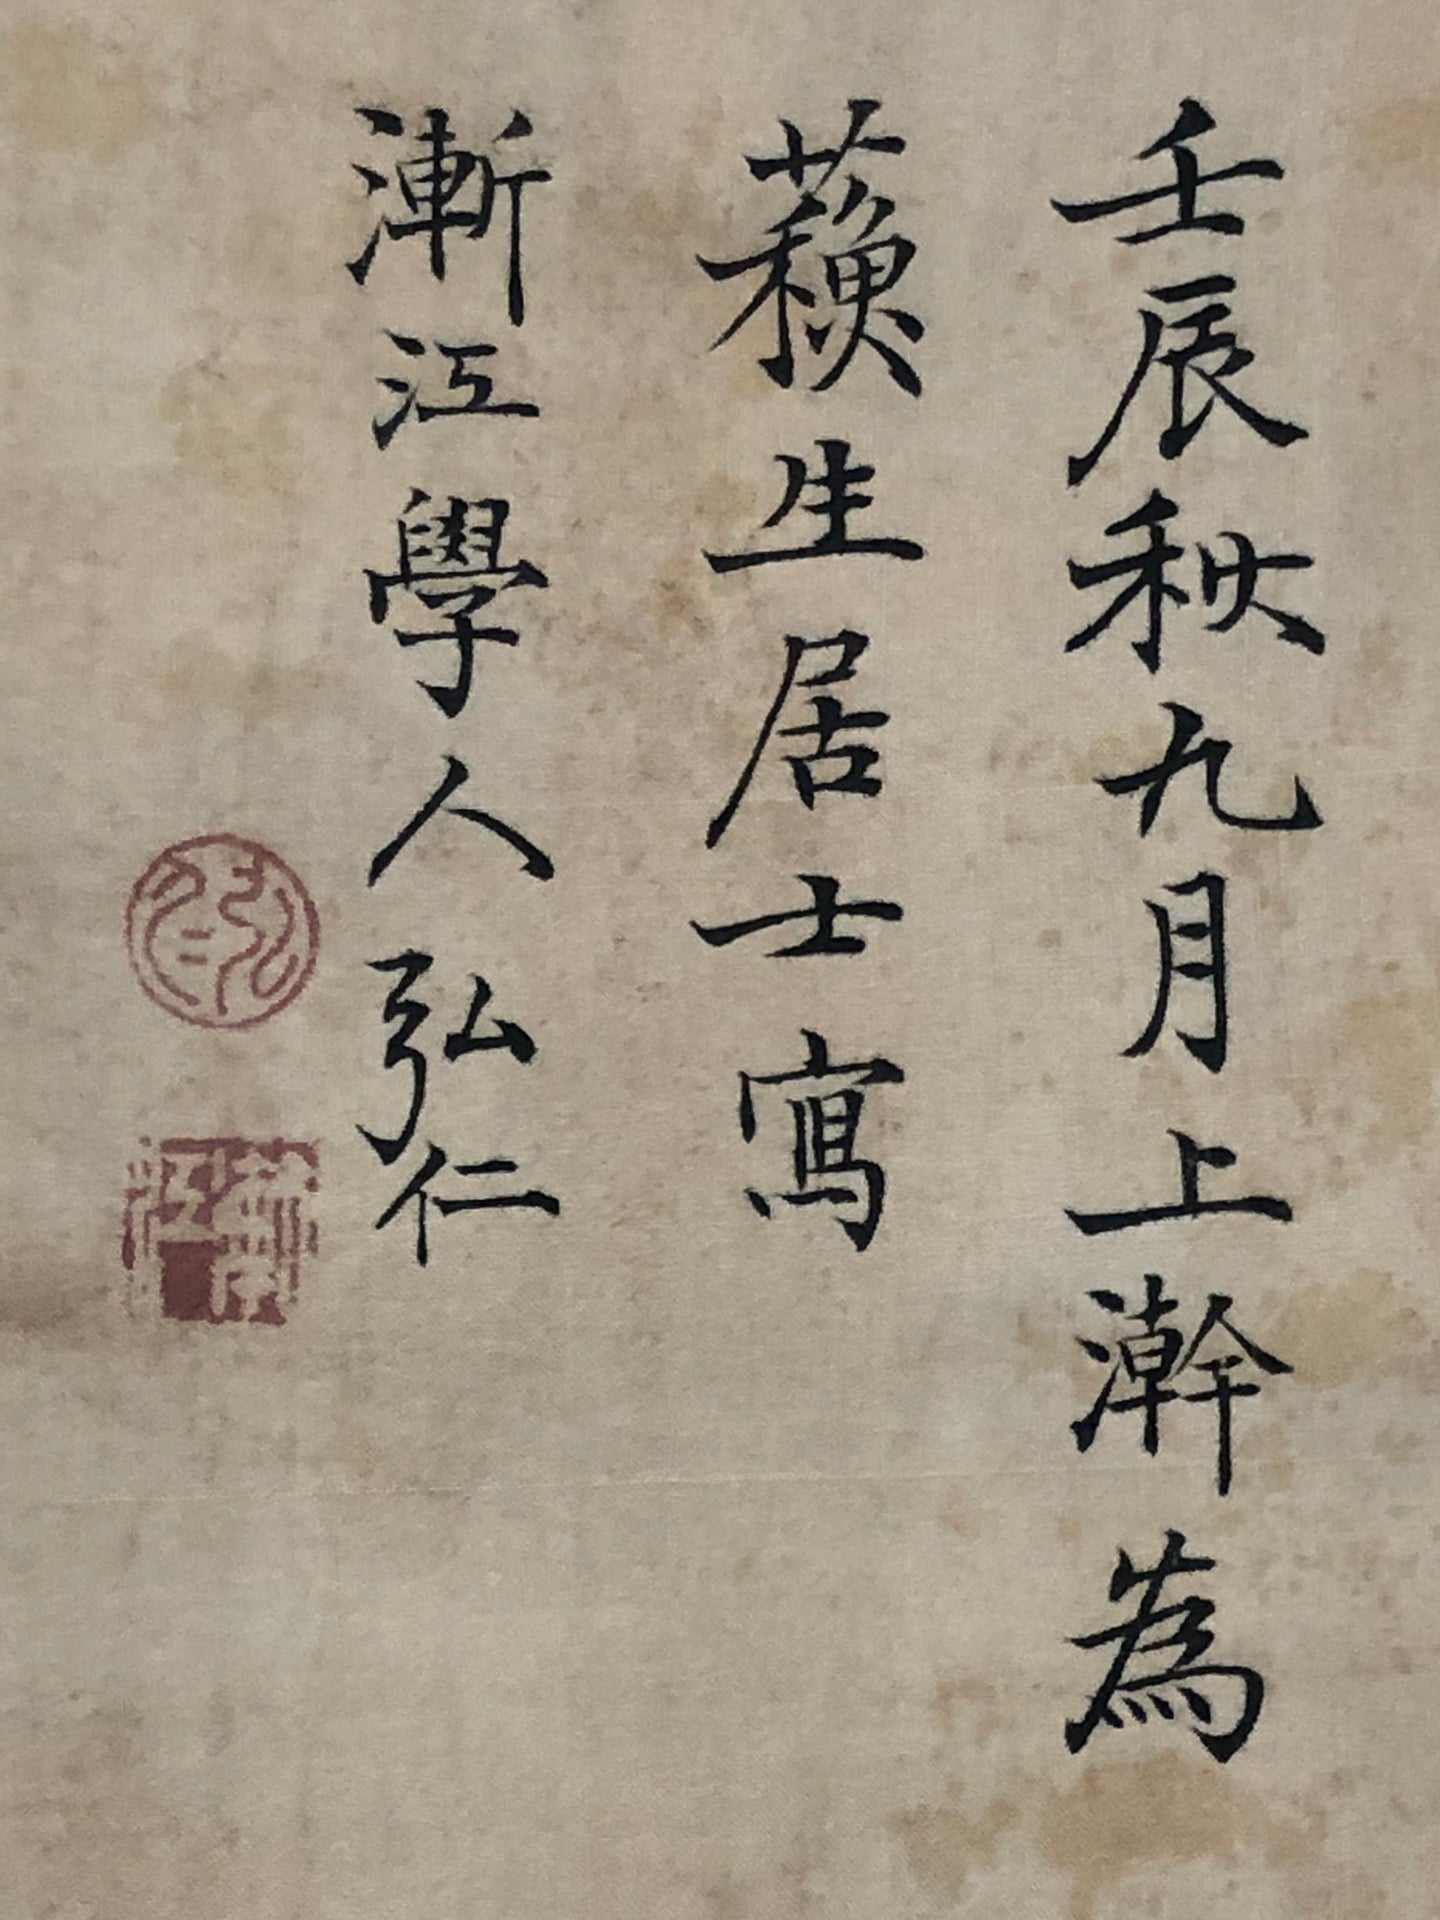 壬辰秋九月上澣為
蘓生居士寫
漸江學人弘仁
弘仁
漸江